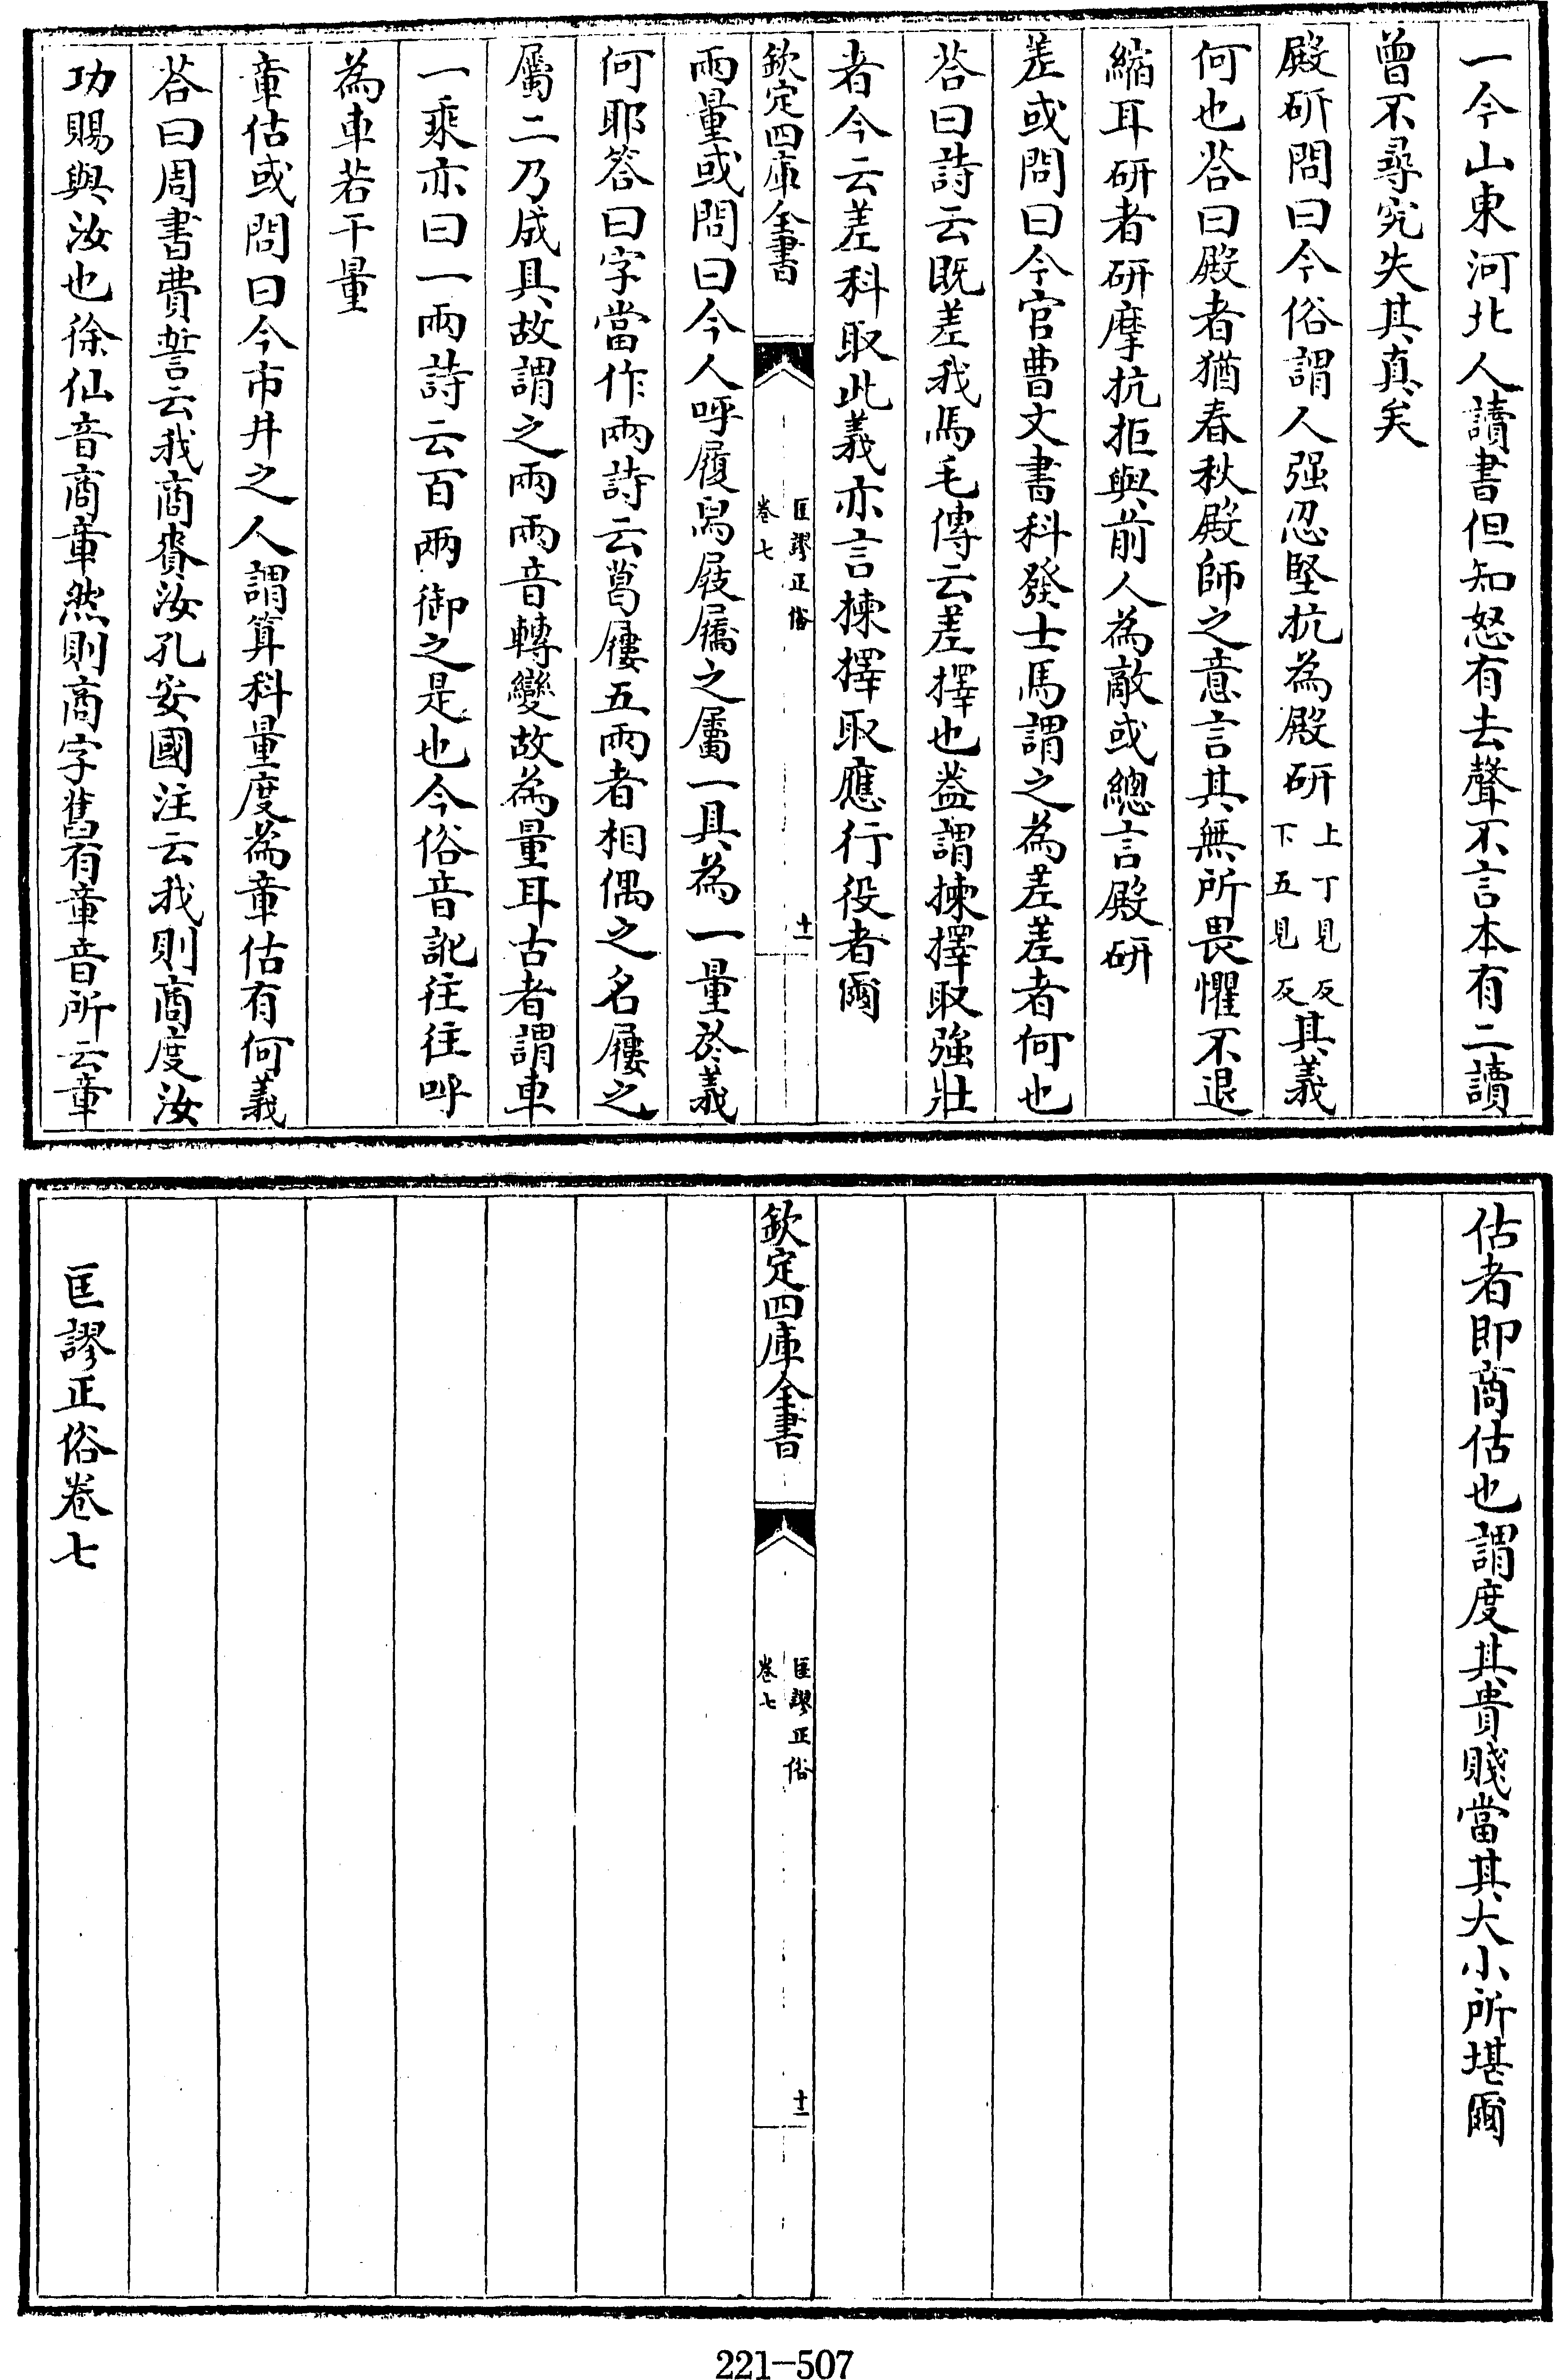 一今山東河北人讀書但知怒有去聲不言本有二讀
曾不尋究失其真矣
殿研問曰今俗謂人强忍堅抗為殿研上丁見反下五見反其義
何也荅曰殿者猶春秋殿師之意言其無所畏懼不退
縮耳研者研摩抗拒與前人為敵或總言殿研
差或問曰今官曹文書科發士馬謂之為差差者何也
荅曰詩云既差我馬毛傳云差擇也葢謂揀擇取強壯
者今云差科取此義亦言揀擇取應行役者爾
欽定四庫全書
匡謬正俗
卷七
十一
兩量或問曰今人呼履舄屐屩之屬一具為一量於義
何耶答曰字當作兩詩云葛屨五兩者相偶之名屨之
屬二乃成具故謂之兩兩音轉變故為量耳古者謂車
一乘亦曰一兩詩云百兩御之是也今俗音訛往往呼
為車若干量
章估或問曰今市井之人謂算科量度為章估有何義
荅曰周書費誓云我商賚汝孔安國注云我則商度汝
功賜與汝也徐仙音商章然則商字舊有章音所云章
估者即商估也謂度其貴賤當其大小所堪爾
欽定四庫全書
匡謬正俗
卷七
十二
匡謬正俗卷七
221-507